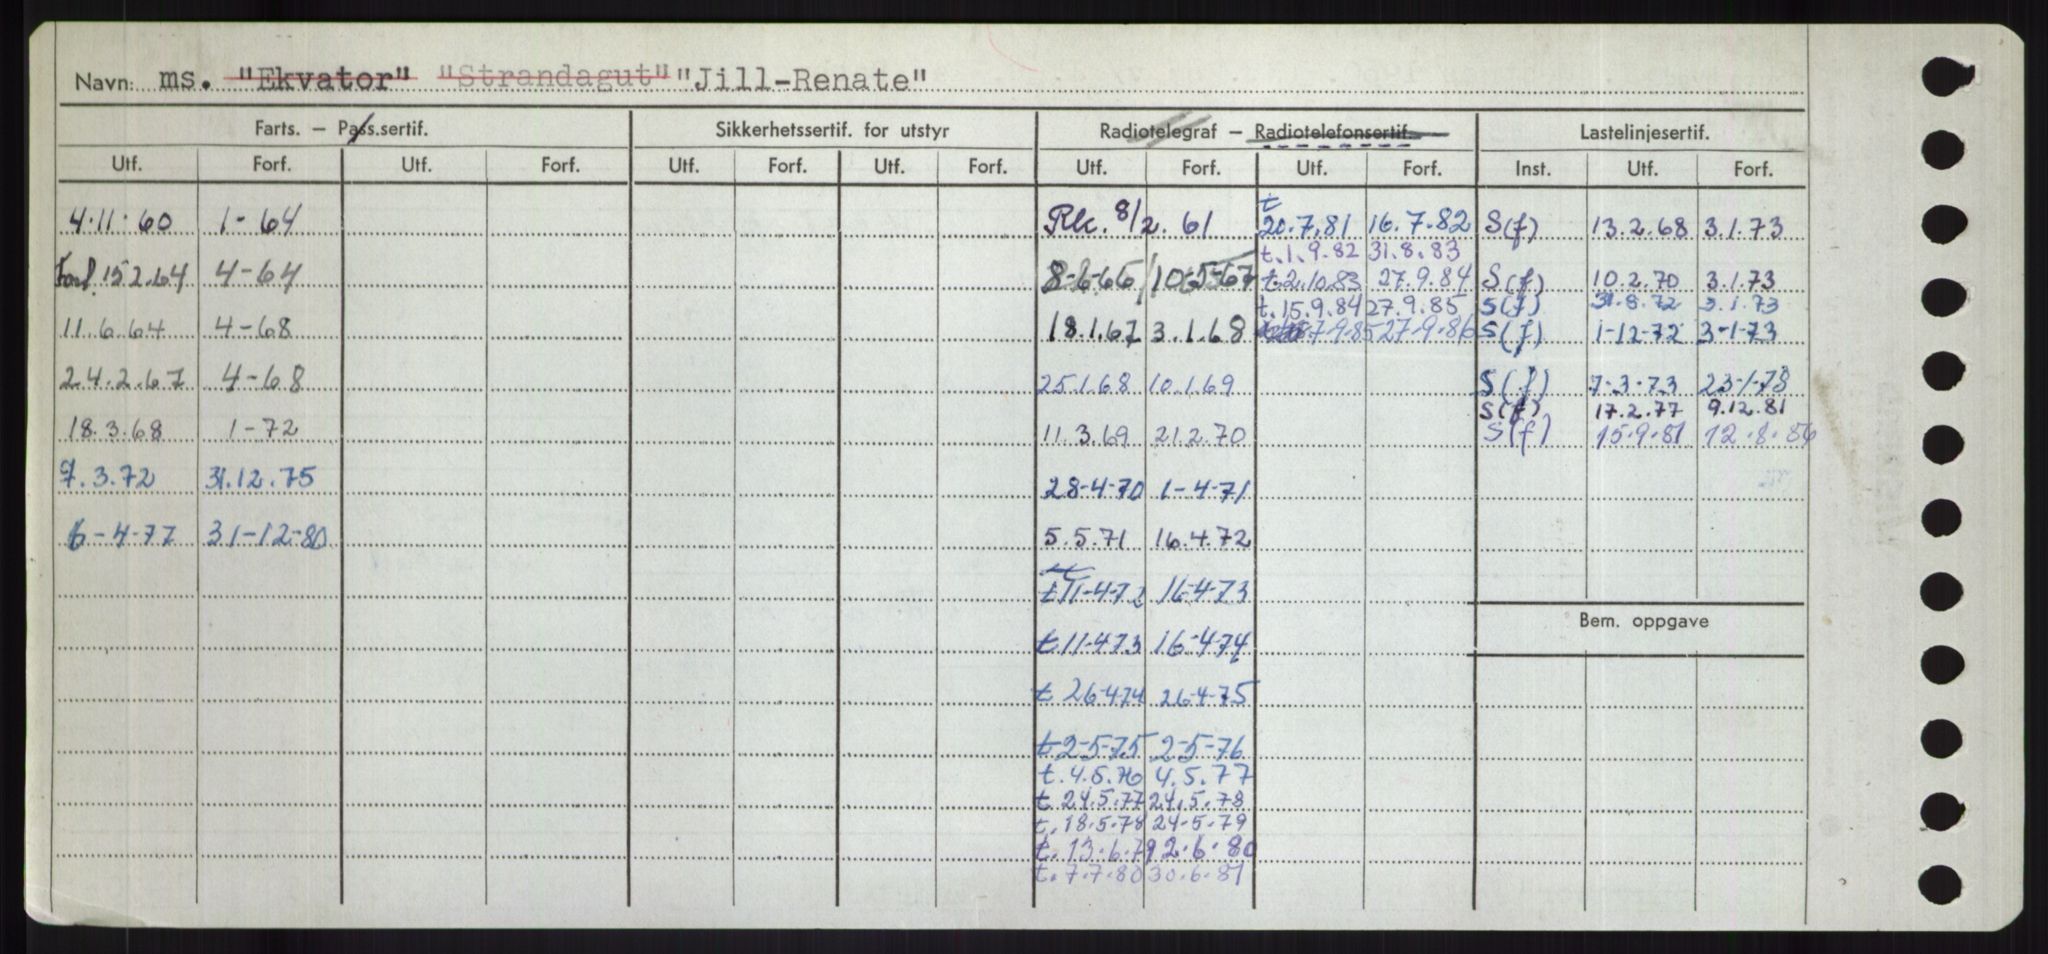 Navn: ms. "Ekvator" "Strandagut" "Jill-Renate"
Farts. - Pass.sertif. Sikkerhetssertif. for utstyr Radiotelegraf - Radiotelefonsertif. Lastelinjesertif.
Utf. Forf. Utf. Forf. Utf. Forf. Utf. Forf. Utf. Forf. Utf. Forf. Inst. Utf. Forf.
4.11.60 1-64 Rk. 8/2.61 t 20.7.81 16.7.82 S(f) 13.2.68 3.1.73
t.1.9.82 31.8.83
Forl. 15.2.64 4-64 8-6-66 10-5-67 t.2.10.83 27.9.84 S(f) 10.2.70 3.1.73
t.15.9.84 27.9.85 S(f) 31.8.72 3.1.73
11.6.64 4-68 18.1.67 3.1.68 7-9-85 27-9-86 S(f) 1-12-72 3-1-73
24.2.67 4-68 25.1.68 10.1.69 S(f) 7-3-73 23-1-78
S(f) 17.2.77 9.12.81
18.3.68 1-72 11.3.69 21.2.70 S(f) 15.9.81 12.8.86
7.3.72 31.12.75 28-4-70 1-4-71
6-4-77 31-12-80 5.5.71 16.4.72
t 11-4-72 16-4-73
t 11-4-73 16-4-74
t 26-4-74 26-4-75
t 2-5-75 2-5-76
t.4.5.76 4.5.77
t. 24.5.77 24.5.78
t. 18.5.78 24.5.79
t. 13.6.79 12.6.80
t. 7.7.80 30.6.81
Bem. oppgave